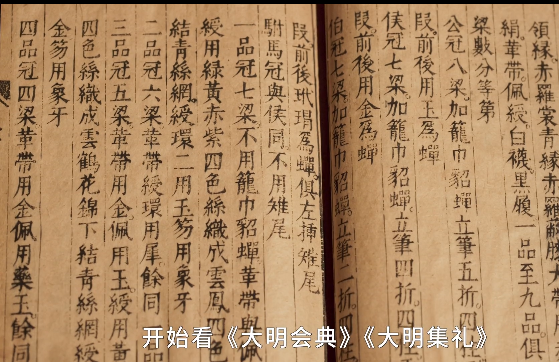 領緣赤羅裳青緣赤羅蔽膝
絹革帶佩綬白襪黑履一品至九品俱
梁數分等第
公冠八梁加籠巾貂蟬立筆五折四
段前後用玉爲蟬
侯冠七梁加籠巾貂蟬立筆四折四
段前後用金爲蟬
伯冠七梁加籠巾貂蟬立筆二折四
段前後玳瑁爲蟬俱左揷雉尾
駙馬冠與侯同不用雉尾
一品冠七梁不用籠巾貂蟬革帶與佩
綬用緑黃赤紫四色絲織成雲鳳四色
結青絲網綬環二用玉笏用象牙
二品冠六梁革帶綬環用犀餘同
三品冠五梁革帶用金佩用玉綬用黃
四色絲織成雲鶴花錦下結青絲網綬
金笏用象牙
四品冠四梁革帶用金佩用藥玉餘同
开始看《大明会典》《大明集礼》